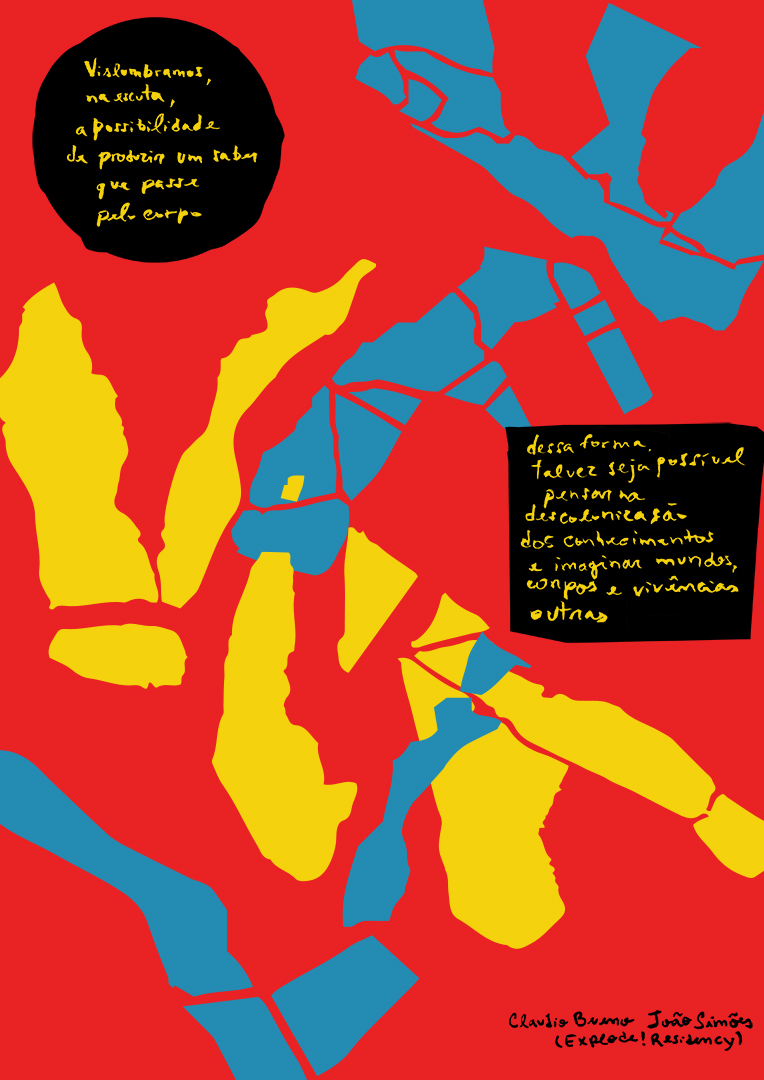 Vislumbramos,
na escuta,
a possibilidade
de produzir um saber
que passe
pelo corpo
dessa forma,
talvez seja possível
pensar na
descolonização
dos conhecimentos
e imaginar mundos,
corpos e vivências
outras
Claudio Bueno João Simões
(Explode! Residency)